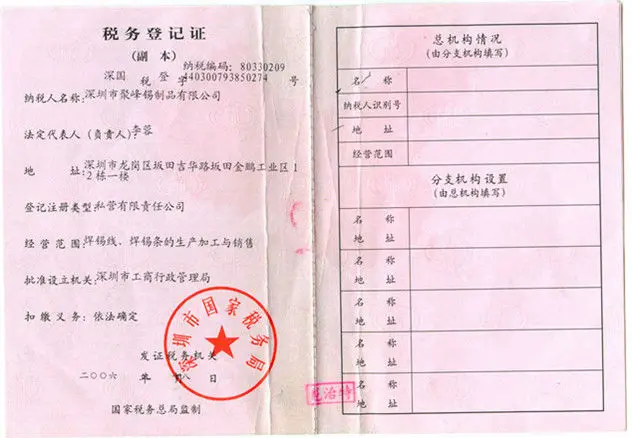 税务登记证
(副 本)
纳税编码: 80330209
深国 税 登字 440300793850274 号
纳税人名称:深圳市聚峰锡制品有限公司
法定代表人(负责人):李蓉
地 址:深圳市龙岗区坂田吉华路坂田金鹏工业区1
2栋一楼
登记注册类型:私营有限责任公司
经 营 范 围:焊锡线、焊锡条的生产加工与销售
批准设立机关:深圳市工商行政管理局
扣 缴 义 务: 依法确定
发证税务机关
深圳市国家税务局
二〇〇六 年 月 八 日
国家税务总局监制
总机构情况
(由分支机构填写)
名 称
纳税人识别号
地 址
经营范围
分支机构设置
(由总机构填写)
名 称
地 址
名 称
地 址
名 称
地 址
名 称
地 址
名 称
地 址